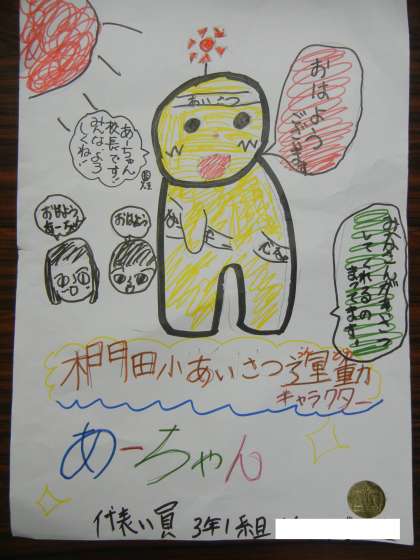 あいさつ
おはよう
あーちゃん
校長です!
みんな、よろ
しくね!
おはよう
あーちゃん
おはよう
みなさんがあいさつ
いてくれるの
まってます!
田小あいさつ運動
キャラクター
あーちゃん
代表い員 3年1組